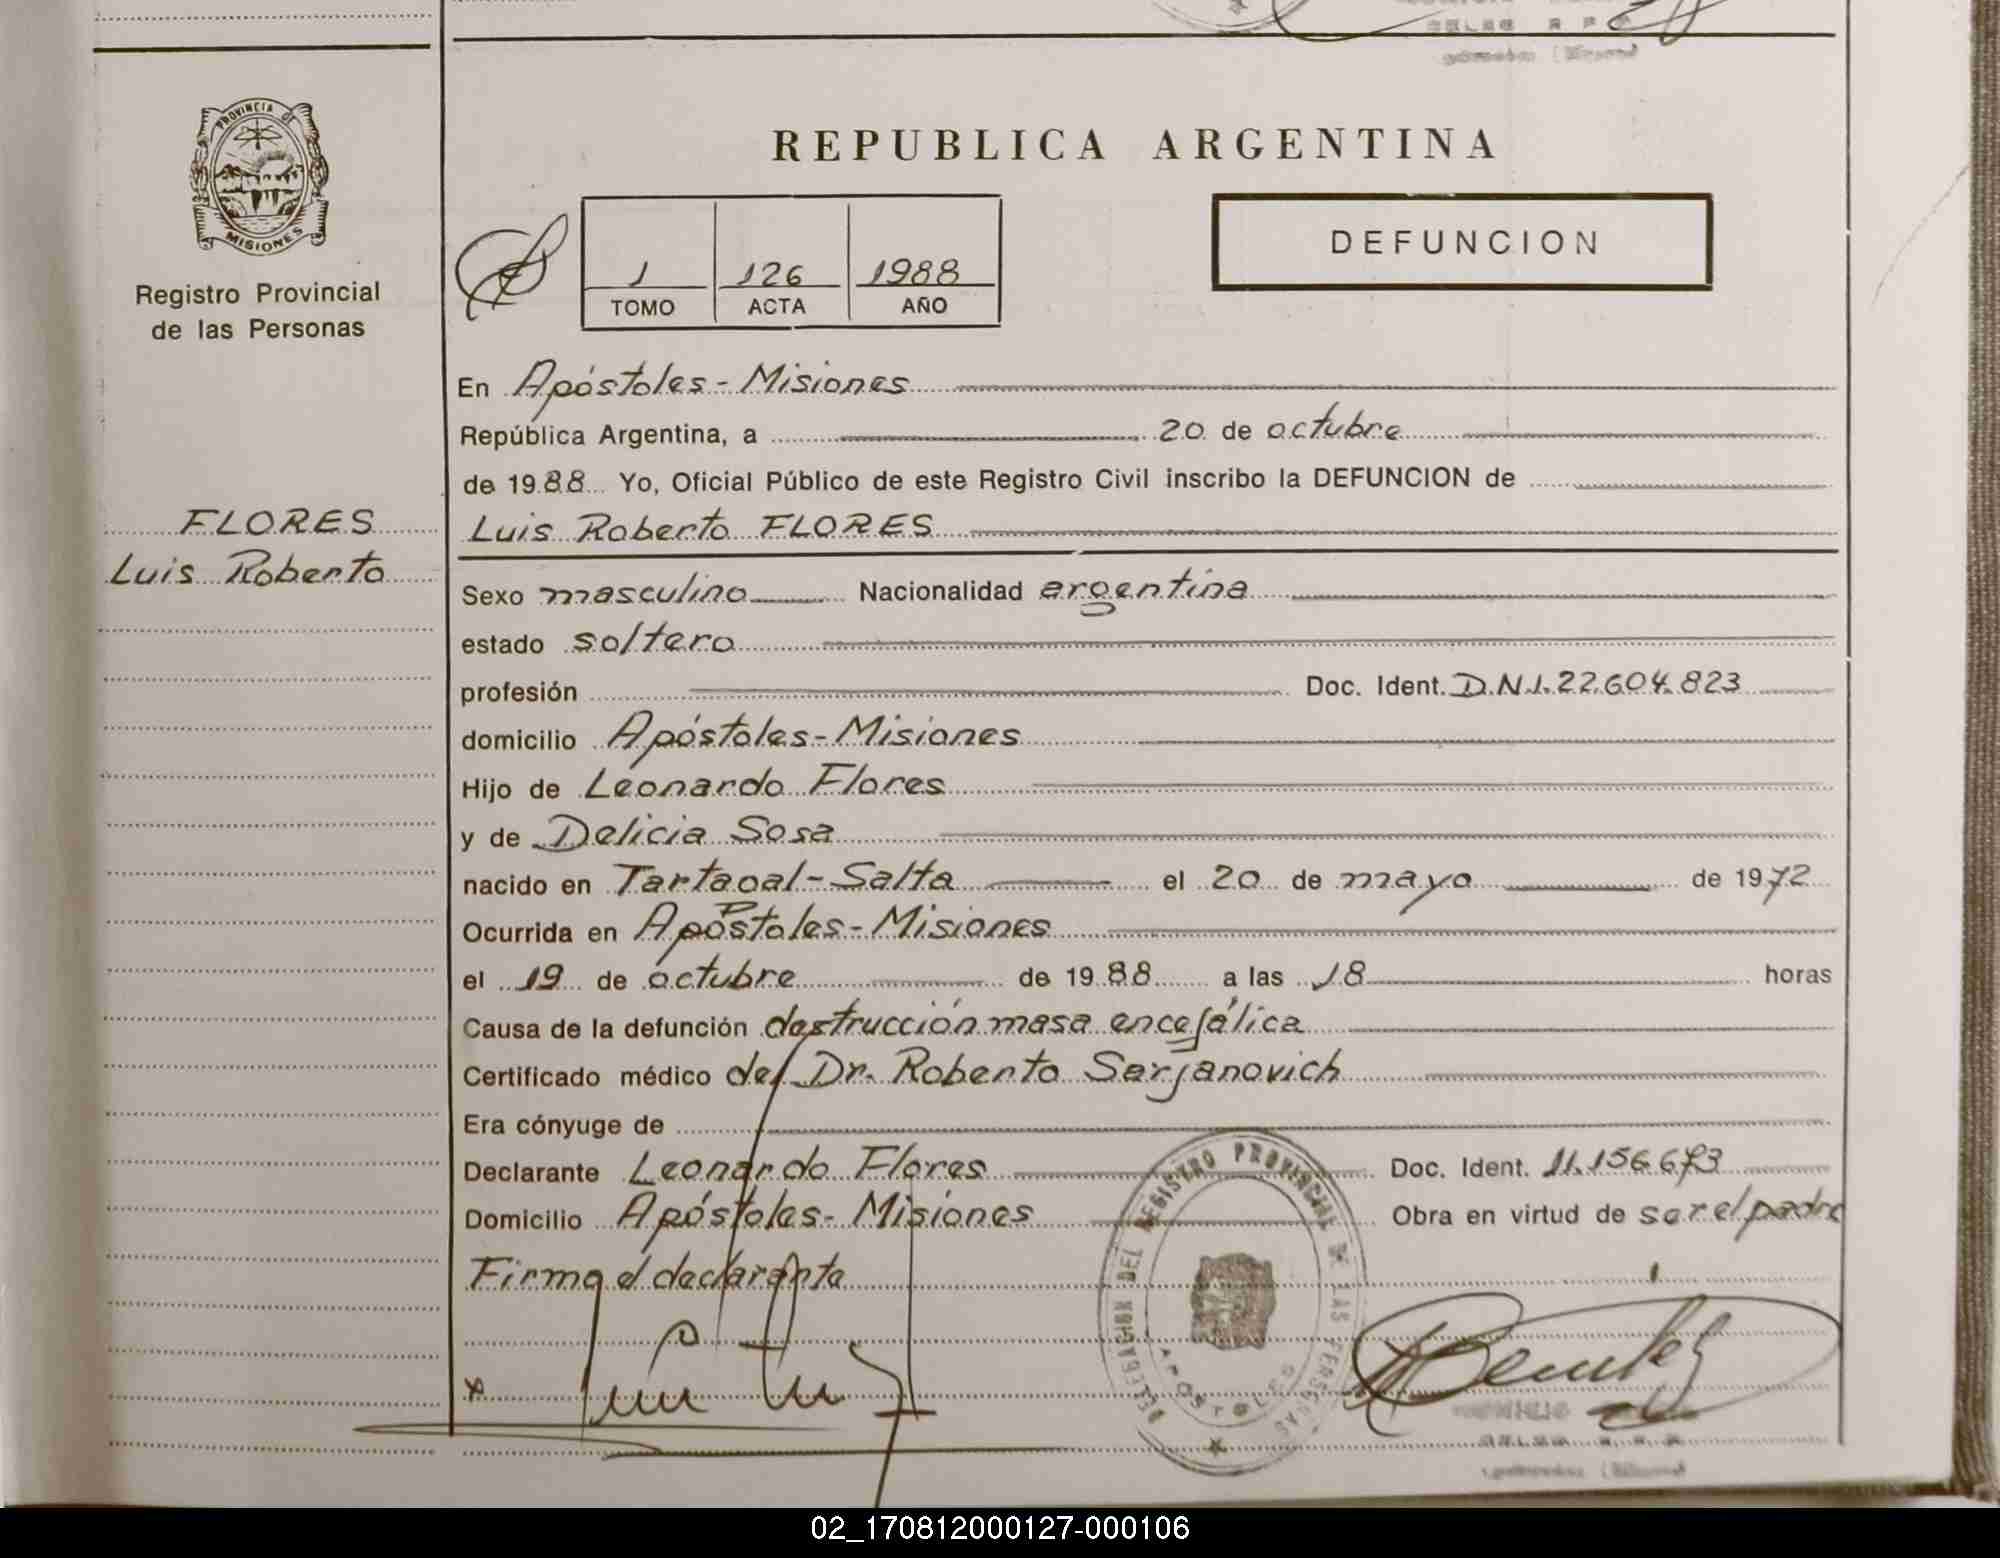 PROVINCIA DE
MISIONES
Registro Provincial
de las Personas
FLORES
Luis Roberto
REPUBLICA ARGENTINA
DEFUNCION
1 126 1988
TOMO ACTA AÑO
En Apóstoles - Misiones
República Argentina, a 20 de octubre
de 1988 Yo, Oficial Público de este Registro Civil inscribo la DEFUNCION de
Luis Roberto FLORES
Sexo masculino Nacionalidad argentina
estado soltero
profesión Doc. Ident. D.N.I. 22.604.823
domicilio Apóstoles - Misiones
Hijo de Leonardo Flores
y de Delicia Sosa
nacido en Tartagal - Salta el 20 de mayo de 1972
Ocurrida en Apóstoles - Misiones
el 19 de octubre de 1988 a las 18 horas
Causa de la defunción destrucción masa encefálica
Certificado médico del Dr. Roberto Serjanovich
Era cónyuge de
Declarante Leonardo Flores Doc. Ident. 11.156.673
Domicilio Apóstoles - Misiones Obra en virtud de ser el padre
Firma el declarante
DELEGACION DEL REGISTRO PROVINCIAL DE LAS PERSONAS
APOSTOLES
02_170812000127-000106